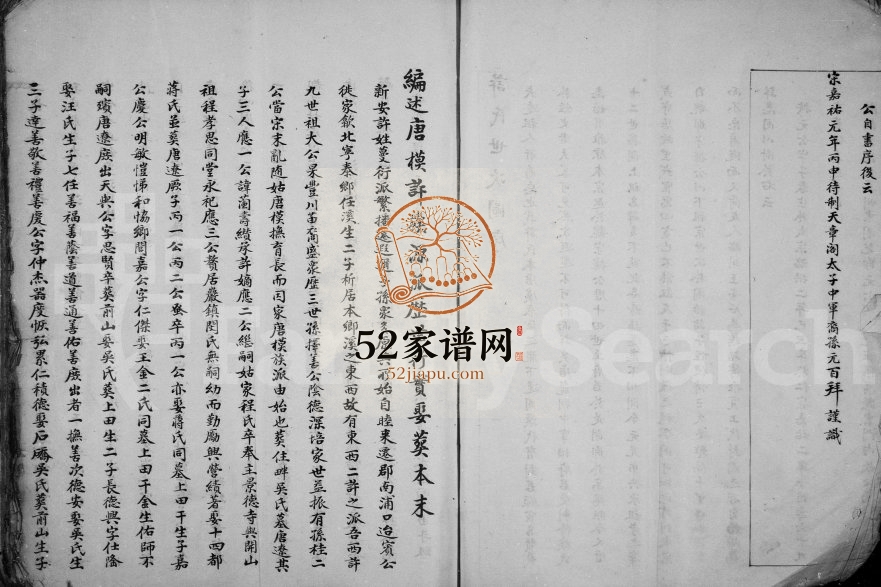 公自書序後云
宋嘉祐元年丙申待制天章閣太子中軍裔孫元百拜謹識
編述唐模許
娶葬本末
新安許姓蔓衍派繁
始自睦來遷郡南浦口迨賓公
徙家歙北寧泰鄉任溪生二子析居本鄉溪之東西故有東西二許之派吾西許
九世祖大公杲豐川苗裔盛眾歷三世孫擇善公陰德深培家世益振有孫桂二
公當宋末亂隨姑唐模撫育長而因家唐模族派由始也葬住畔吳氏墓唐遼其
子三人應一公諱蘭壽纘承許嫡應二公繼嗣姑家程氏卒奉主景德寺與開山
祖程孝思同堂永祀應三公贅居嚴鎮閔氏無嗣幼而勤勵興營績著娶十四都
蔣氏並葬唐遼厥子丙一公丙二公蚤卒丙一公亦娶蔣氏同墓上田干生子嘉
公慶公明敏愷悌和恊鄉閭嘉公字仁傑娶王金二氏同墓上田千金生佑師不
嗣殯唐遼庶出天與公字思賢卒葬前山娶吳氏葬上田生二子長德興字仕隆
娶汪氏生子七任善福善蔭善道善通善佑善庶出者一撫善次德安娶吳氏生
三子達善敬善禮善慶公字仲杰器度恢弘累仁積德娶石磷吳氏葬前山生子
52家谱网
52jiapu.com
Search